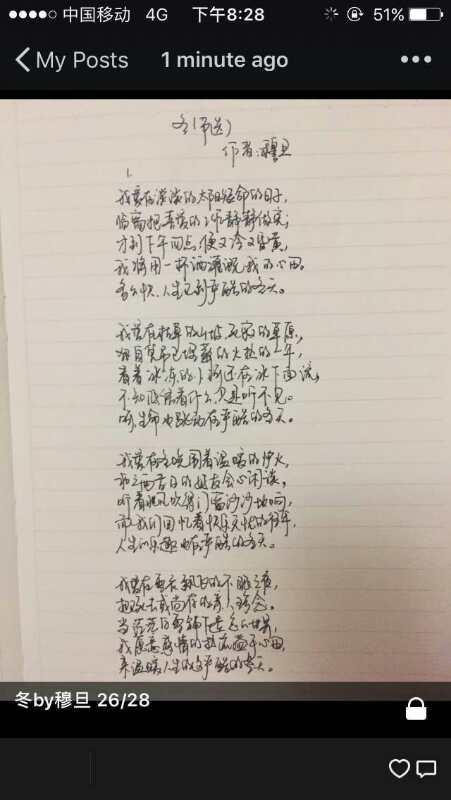 中国移动 4G 下午8:28 51%
My Posts 1 minute ago
冬(节选)
作者:穆旦
1.
我爱在淡淡的太阳短命的日子,
临窗把喜爱的工作静静做完;
才到下午四点,便又冷又昏黄,
我将用一杯酒灌溉我的心田。
多么快,人生已到严酷的冬天。
我爱在枯草的山坡,死寂的草原,
独自凭吊已埋葬的火热的一年,
看着冰冻的小河还在冰下面流,
不知低语着什么,只是听不见。
呵,生命也跳动在严酷的冬天。
我爱在冬晚围着温暖的炉火,
和三两昔日的好友会心闲谈,
听着北风吹得门窗沙沙地响,
而我们回忆着快乐无忧的往年,
人生的乐趣也在严酷的冬天。
我爱在雪花飘飞的不眠之夜,
把死去或尚存的亲人珍念。
当茫茫白雪铺下遗忘的世界,
我愿意感情的热流溢于心田,
来温暖人生的这严酷的冬天。
冬by穆旦 26/28